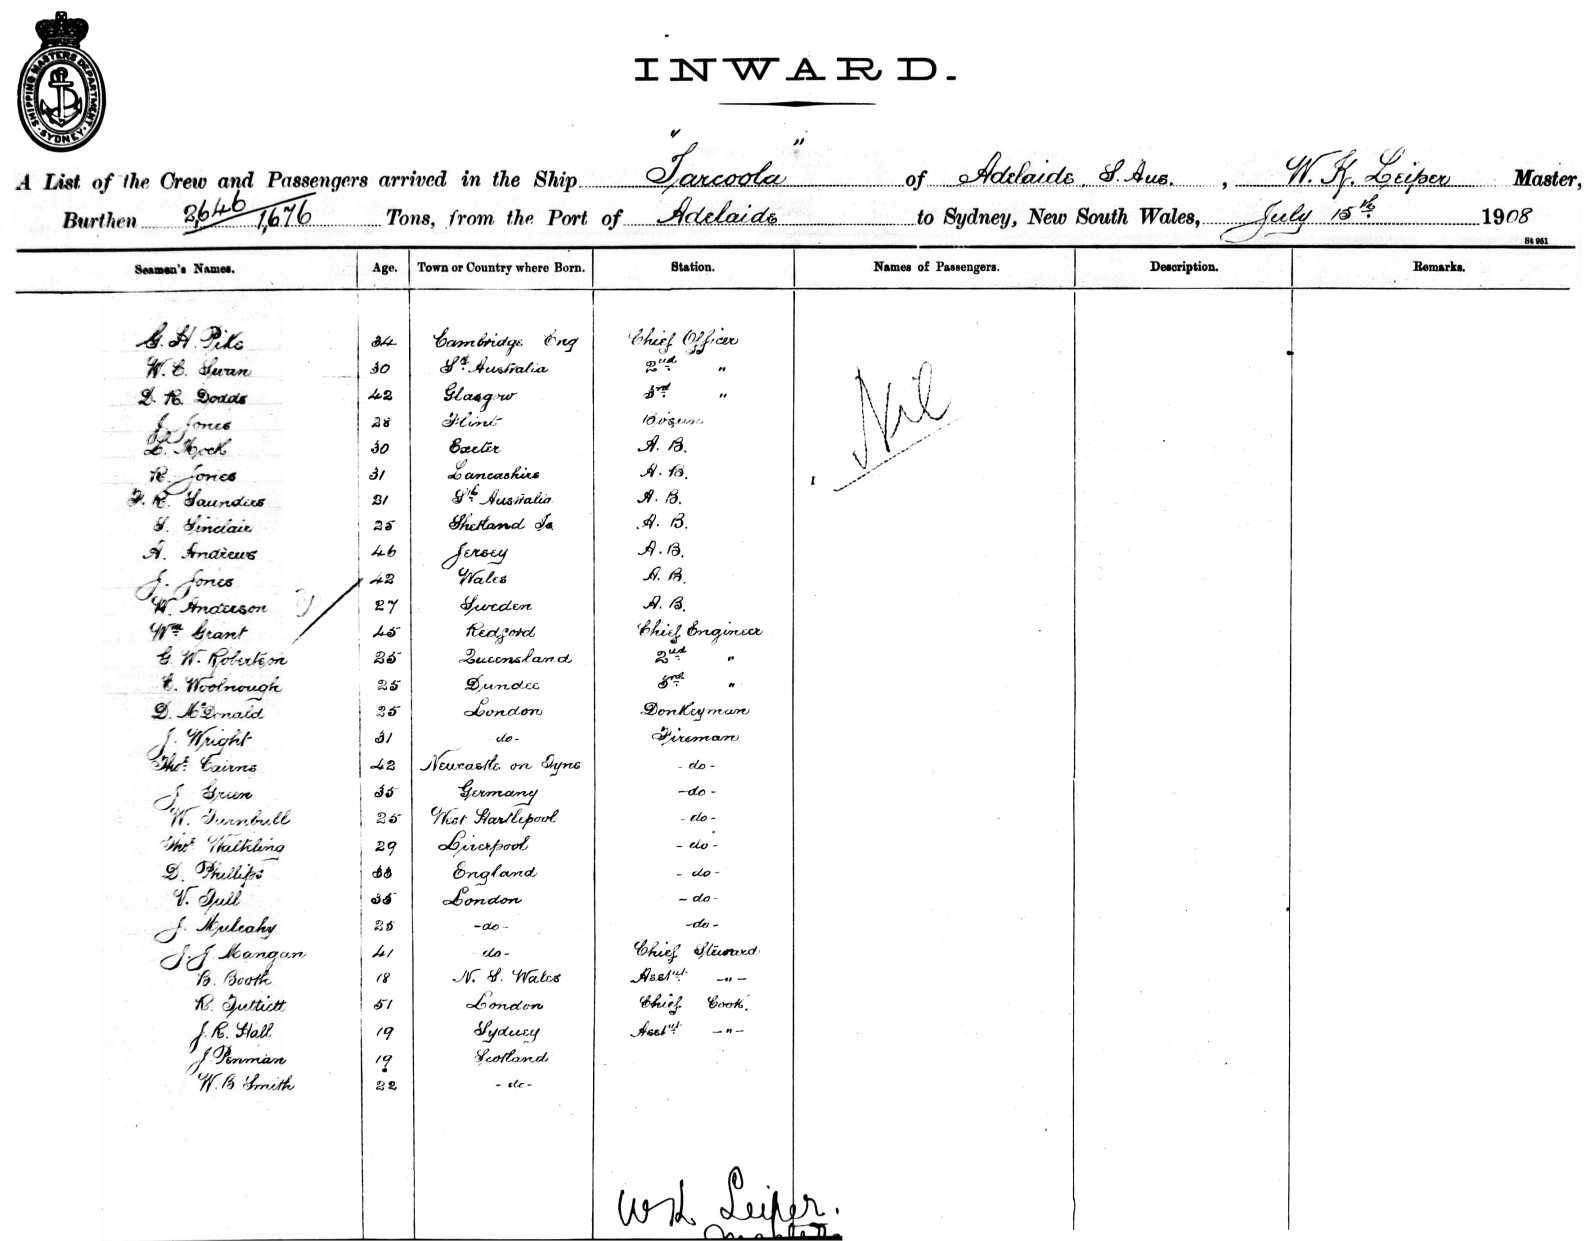 SHIPPING MASTERS DEPARTMENT · SYDNEY ·
INWARD.
A List of the Crew and Passengers arrived in the Ship "Tarcoola" of Adelaide S. Aus., W. K. Leiper Master,
Burthen 2646/1,676 Tons, from the Port of Adelaide to Sydney, New South Wales, July 15th 1908
St 951
Seamen's Names. Age. Town or Country where Born. Station. Names of Passengers. Description. Remarks.
G. H. Pike 34 Cambridge Eng Chief Officer
W. C. Swan 30 Sth Australia 2nd "
D. R. Dodds 42 Glasgow 3rd "
J. Jones 28 Flint Bosun
Nil
L. Mock 30 Exeter A. B.
R. Jones 31 Lancashire A. B.
F. R. Saunders 31 Sth Australia A. B.
S. Sinclair 25 Shetland Is A. B.
A. Andrews 46 Jersey A. B.
J. Jones 42 Wales A. B.
W. Anderson 27 Sweden A. B.
Wm Grant 45 Redford Chief Engineer
G. W. Robertson 25 Queensland 2nd "
E. Woolnough 25 Dundee 3rd "
D. McDonald 25 London Donkeyman
J. Wright 31 do- Fireman
Thos. Cairns 42 Newcastle on Tyne - do -
J. Green 35 Germany - do -
W. Turnbull 25 West Hartlepool - do -
Thos. Walkling 29 Liverpool - do -
D. Phillips 33 England - do -
V. Tull 35 London - do -
J. Mulcahy 25 - do - - do -
J. J. Mangan 41 do - Chief Steward
B. Booth 18 N. S. Wales Asst - " -
R. Tuttiett 51 London Chief Cook.
J. R. Hall 19 Sydney Asst - " -
J. Penman 19 Scotland
W. B. Smith 22 - do -
W K Leiper.
Master